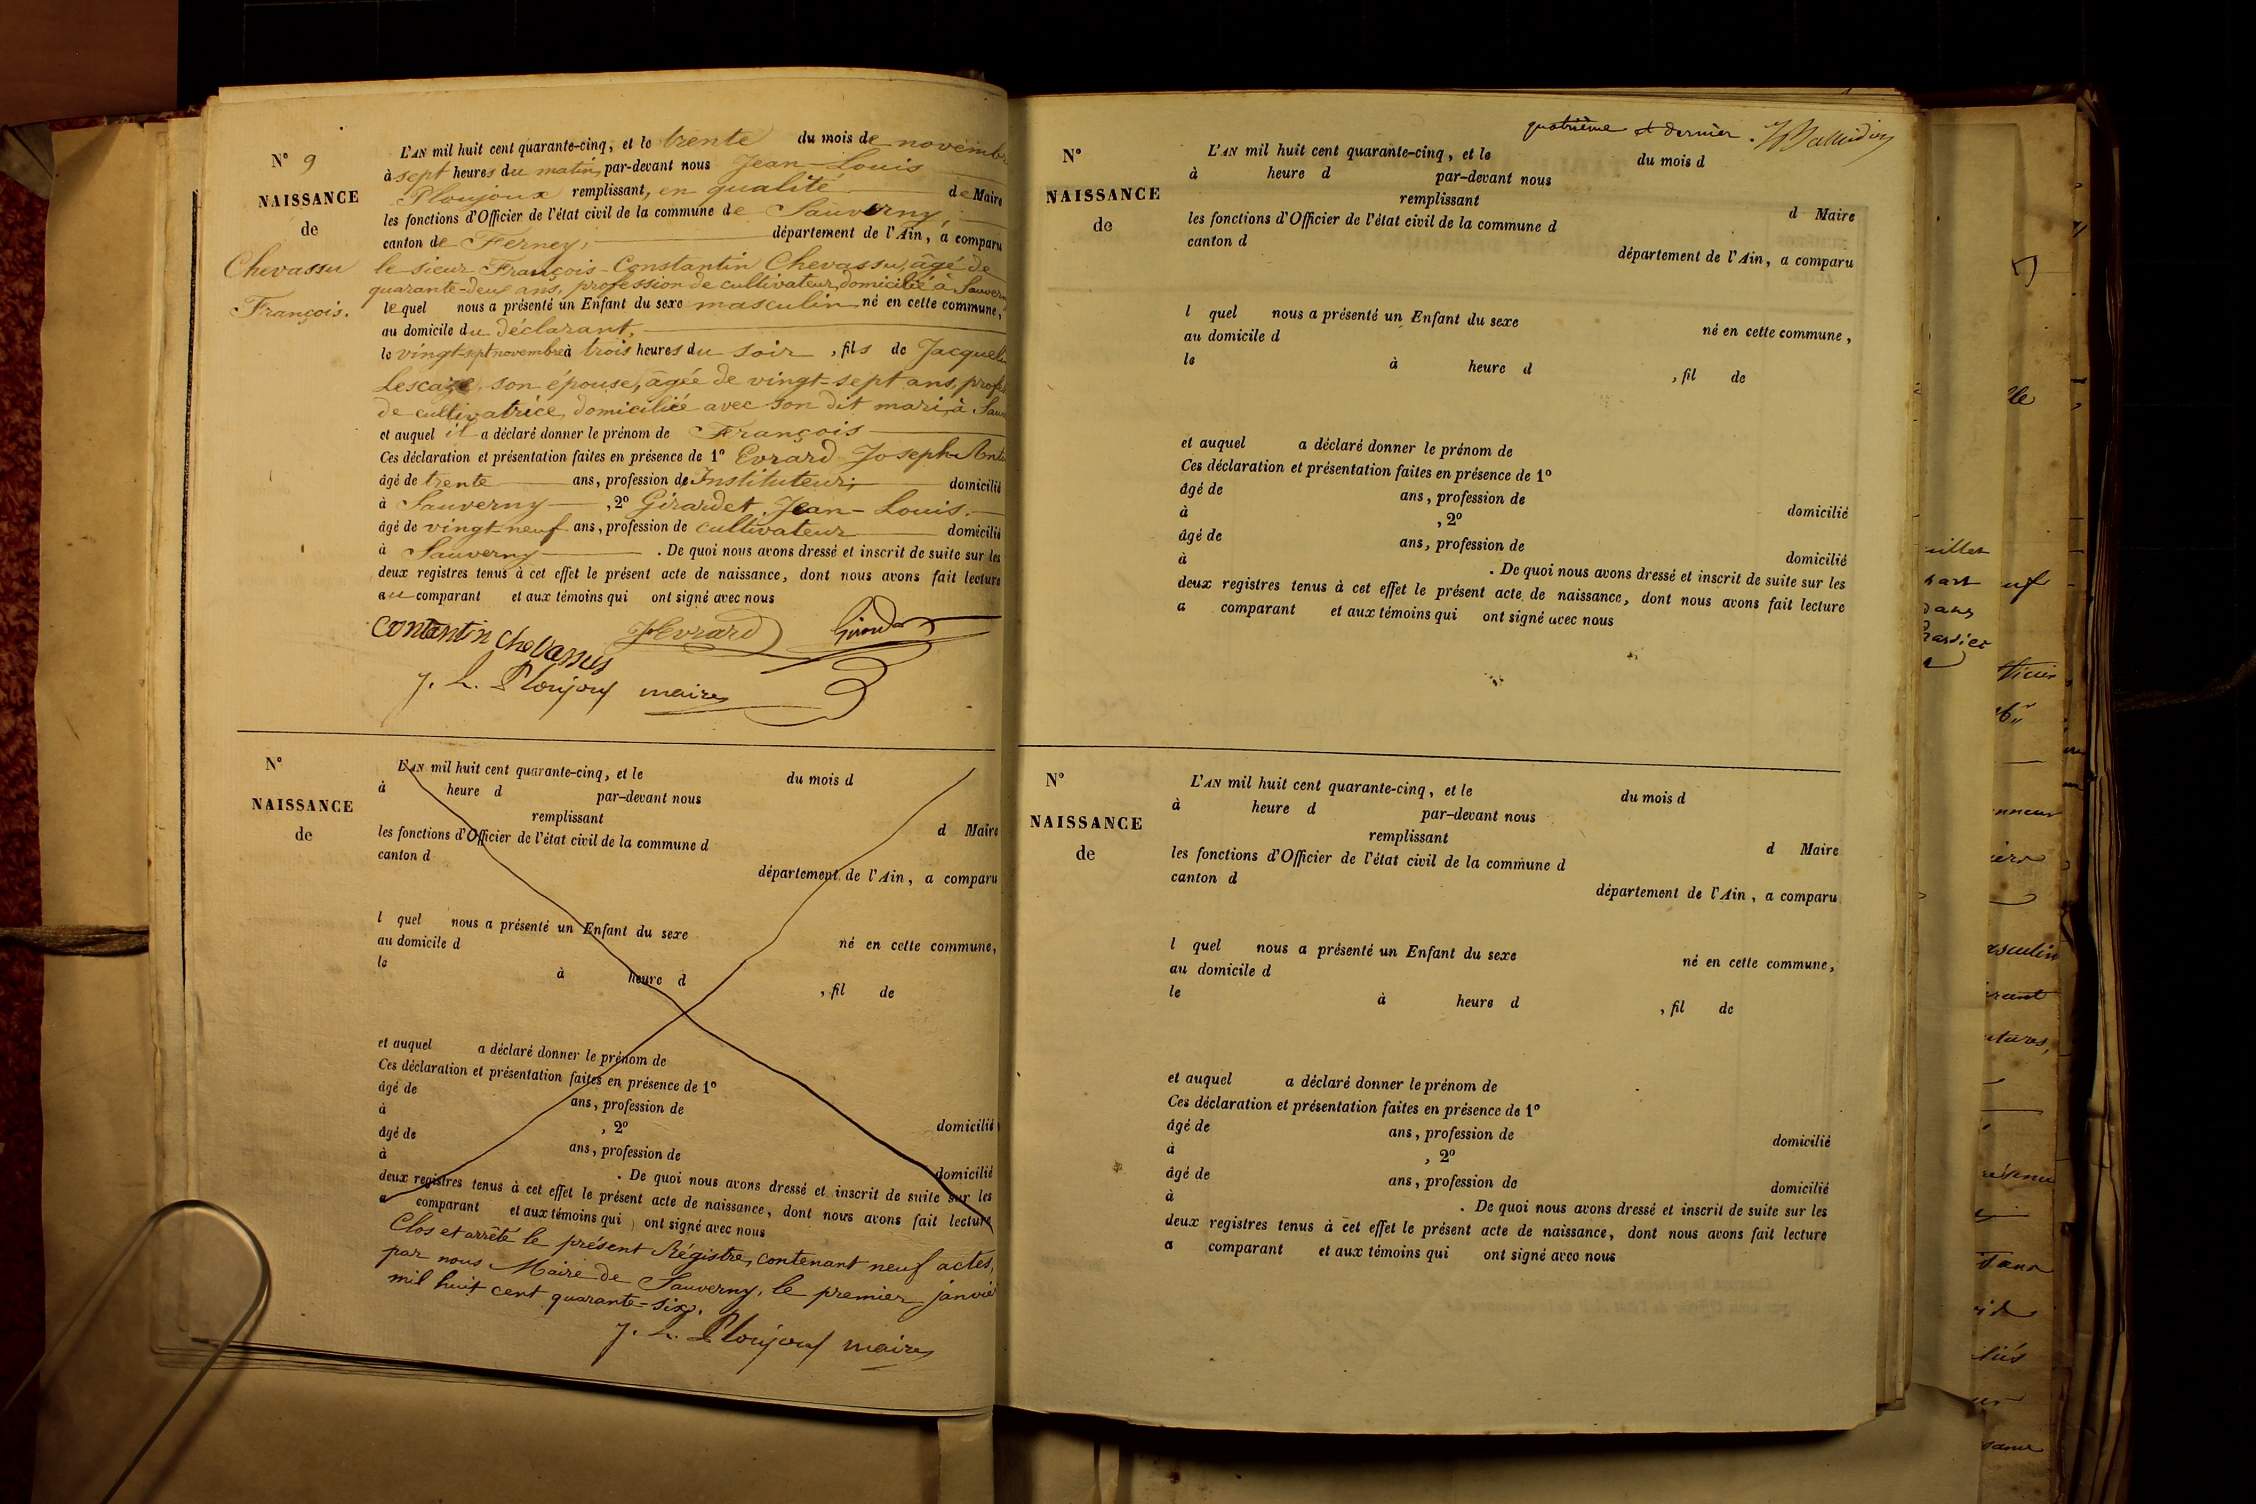 N° 9
NAISSANCE
de
Chevassu
François.
L'AN mil huit cent quarante-cinq, et le trente du mois de novembre
à sept heures du matin, par-devant nous Jean-Louis
Ploujoux remplissant, en qualité de Maire
les fonctions d'Officier de l'état civil de la commune de Sauverny,
canton de Ferney, département de l'Ain, a comparu
le sieur François-Constantin Chevassu, âgé de
quarante-deux ans, profession de cultivateur, domicilié à Sauverny
lequel nous a présenté un Enfant du sexe masculin né en cette commune,
au domicile du déclarant,
le vingt-sept novembre à trois heures du soir, fils de Jacqueli
Lescaze, son épouse, âgée de vingt-sept ans, profes
de cultivatrice, domiciliée avec son dit mari, à Sauv
et auquel il a déclaré donner le prénom de François
Ces déclaration et présentation faites en présence de 1° Evrard Joseph Anto
âgé de trente ans, profession de Instituteur, domicilié
à Sauverny, 2° Girardet, Jean-Louis.
âgé de vingt-neuf ans, profession de cultivateur domicilié
à Sauverny. De quoi nous avons dressé et inscrit de suite sur les
deux registres tenus à cet effet le présent acte de naissance, dont nous avons fait lecture
au comparant et aux témoins qui ont signé avec nous
Contantin chevassus JEvrard Girardet
J. L. Ploujoux maire
N°
NAISSANCE
de
L'AN mil huit cent quarante-cinq, et le du mois d
à heure d par-devant nous
remplissant d Maire
les fonctions d'Officier de l'état civil de la commune d
canton d département de l'Ain, a comparu
l quel nous a présenté un Enfant du sexe né en cette commune,
au domicile d
le à heure d , fil de
et auquel a déclaré donner le prénom de
Ces déclaration et présentation faites en présence de 1°
âgé de ans, profession de domicilié
à , 2°
âgé de ans, profession de domicilié
à . De quoi nous avons dressé et inscrit de suite sur les
deux registres tenus à cet effet le présent acte de naissance, dont nous avons fait lecture
a comparant et aux témoins qui ont signé avec nous
Clos et arrêté le présent Régistre, contenant neuf actes,
par nous Maire de Sauverny, le premier janvier
mil huit cent quarante-six.
J. L. Ploujoux maire
quatrième et dernier.
N°
NAISSANCE
de
L'AN mil huit cent quarante-cinq, et le du mois d
à heure d par-devant nous
remplissant d Maire
les fonctions d'Officier de l'état civil de la commune d
canton d département de l'Ain, a comparu
l quel nous a présenté un Enfant du sexe né en cette commune,
au domicile d
le à heure d , fil de
et auquel a déclaré donner le prénom de
Ces déclaration et présentation faites en présence de 1°
âgé de ans, profession de domicilié
à , 2°
âgé de ans, profession de domicilié
à . De quoi nous avons dressé et inscrit de suite sur les
deux registres tenus à cet effet le présent acte de naissance, dont nous avons fait lecture
a comparant et aux témoins qui ont signé avec nous
N°
NAISSANCE
de
L'AN mil huit cent quarante-cinq, et le du mois d
à heure d par-devant nous
remplissant d Maire
les fonctions d'Officier de l'état civil de la commune d
canton d département de l'Ain, a comparu
l quel nous a présenté un Enfant du sexe né en cette commune,
au domicile d
le à heure d , fil de
et auquel a déclaré donner le prénom de
Ces déclaration et présentation faites en présence de 1°
âgé de ans, profession de domicilié
à , 2°
âgé de ans, profession de domicilié
à . De quoi nous avons dressé et inscrit de suite sur les
deux registres tenus à cet effet le présent acte de naissance, dont nous avons fait lecture
a comparant et aux témoins qui ont signé avec nous